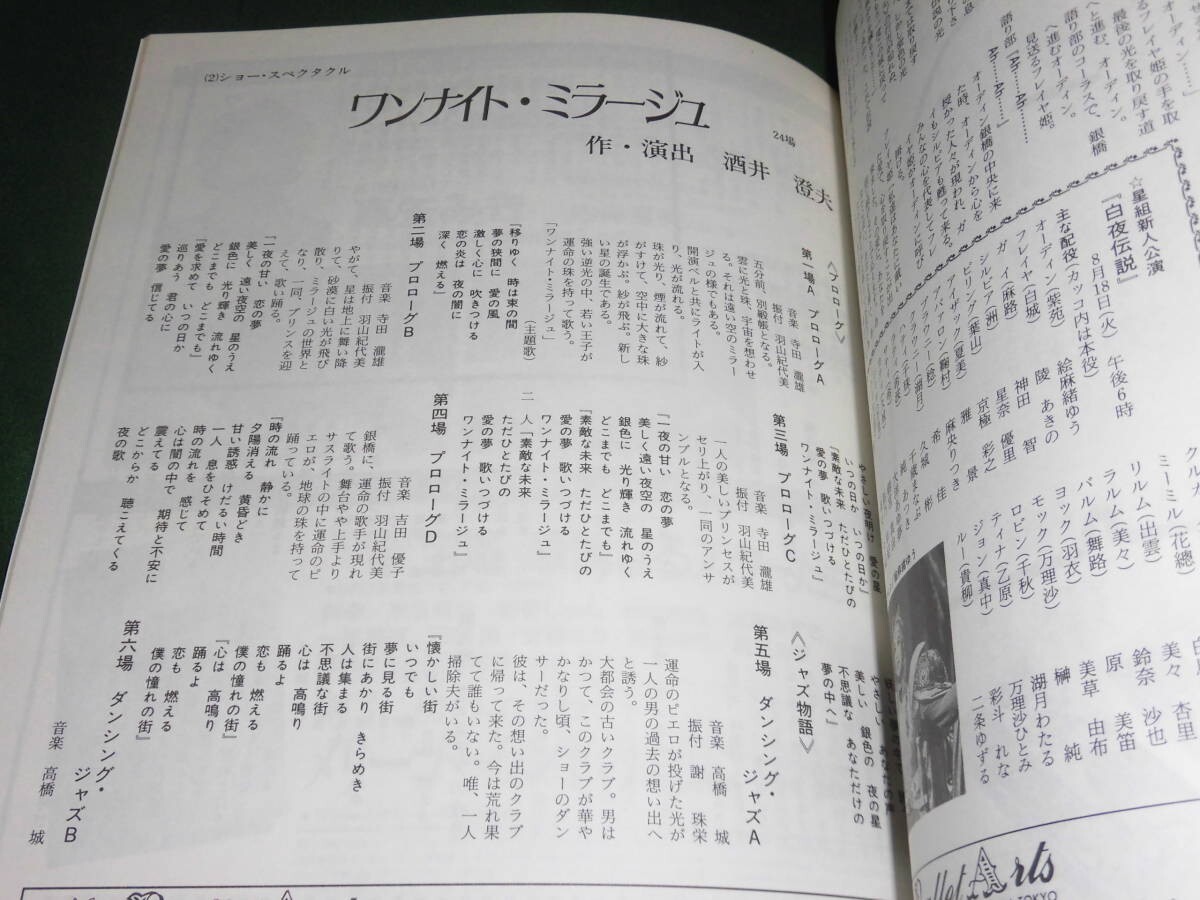 (2)ショー・スペクタクル
ワンナイト・ミラージュ
24場
作・演出 酒井 澄夫
《プロローグ》
第一場A プロローグA
音楽 寺田 瀧雄
振付 羽山紀代美
五分前、別緞帳となる。
雲に光と珠、宇宙を想わせ
る。それは遠い空のミラー
ジュの様でもある。
開演ベルと共にライトが入
り、光が流れる。
珠が光り、煙が流れて、紗
がすけて、空中に大きな珠
が浮かぶ。紗が飛ぶ。新し
い星の誕生である。
強い逆光の中、若い王子が
運命の珠を持って歌う。
「ワンナイト・ミラージュ」
(主題歌)
『移りゆく 時は束の間
夢の狭間に 愛の風
激しく心に 吹きつける
恋の炎は 夜の闇に
深く 燃える』
第二場 プロローグB
音楽 寺田 瀧雄
振付 羽山紀代美
やがて、星は地上に舞い降
りて、砂漠に白い光が飛び
散り、ミラージュの世界と
なり、一同、プリンスを迎
えて、歌い踊る。
『一夜の甘い 恋の夢
美しく 遠い夜空の 星のうえ
銀色に 光り輝き 流れゆく
どこまでも どこまでも』
『愛を求めて いつの日か
巡りあう 君の心に
愛の夢 信じてる
やさしい夜明け 愛の星
いつの日か いつの日か』
『素敵な未来 ただひとたびの
愛の夢 歌いつづける
ワンナイト・ミラージュ』
第三場 プロローグC
音楽 寺田 瀧雄
振付 羽山紀代美
一人の美しいプリンセスが
セリ上がり、一同のアンサ
ンブルとなる。
『一夜の甘い 恋の夢
美しく遠い夜空の 星のうえ
銀色に 光り輝き 流れゆく
どこまでも どこまでも』
『素敵な未来 ただひとたびの
愛の夢 歌いつづける
ワンナイト・ミラージュ』
二人『素敵な未来
ただひとたびの
愛の夢 歌いつづける
ワンナイト・ミラージュ』
第四場 プロローグD
音楽 吉田 優子
振付 羽山紀代美
銀橋に、運命の歌手が現れ
て歌う。舞台やや上手より
サスライトの中に運命のピ
エロが、地球の珠を持って
踊っている。
『時の流れ 静かに
夕陽消える 黄昏どき
甘い誘惑 けだるい時間
一人 息をひそめて
時の流れを 感じて
心は闇の中で 期待と不安に
震えてる
どこからか 聴こえてくる
夜の歌
やさしい あなたの声
美しい 銀色の 夜の星
不思議な あなただけの
夢の中へ』
《ジャズ物語》
第五場 ダンシング・
ジャズA
音楽 高橋 城
振付 謝 珠栄
運命のピエロが投げた光が
一人の男の過去の想い出へ
と誘う。
大都会の古いクラブ。男は
かつて、このクラブが華や
かなりし頃、ショーのダン
サーだった。
彼は、その想い出のクラブ
に帰って来た。今は荒れ果
てて誰もいない。唯、一人
掃除夫がいる。
『懐かしい街
いつでも
夢に見る街
街にあかり きらめき
人は集まる
不思議な街
心は 高鳴り
踊るよ
恋も 燃える
僕の憧れの街』
『心は 高鳴り
踊るよ
恋も 燃える
僕の憧れの街』
第六場 ダンシング・
ジャズB
音楽 高橋 城
オーディン……」
フレイヤ姫の手を取
最後の光を取り戻す道
へと進む、オーディン。
語り部のコーラスで、銀橋
へ進むオーディン。
見送るフレイヤ姫。
語り部『Ah……Ah……Ah……
Ah……Ah……』
オーディン銀橋の中央に来
た時、オーディンから心を
授かった人々が現われ、ガ
イもシルビアも甦って来る。
☆星組新人公演
『白夜伝説』
8月18日(火) 午後6時
主な配役(カッコ内は本役)
オーディン(紫苑) 絵麻緒ゆう
フレイヤ(白城) 陵 あきの
ガイ(麻路) 神田 智
シルビア(洲) 星奈 優里
ビリング(葉山) 京極 彩之
アイザック(夏美)
ミーミル(花總)
リルム(出雲)
ラルム(美々)
バルム(舞路)
ヨック(羽衣)
モック(万理沙)
ロビン(千秋)
ティナ(乙原)
ジョン(真中)
ルー(貴柳)
美々 杏里
鈴奈 沙也
原 美笛
美草 由布
榊 純
湖月わたる
万理沙ひとみ
彩斗 れな
二条ゆずる
Arts
TOKYO